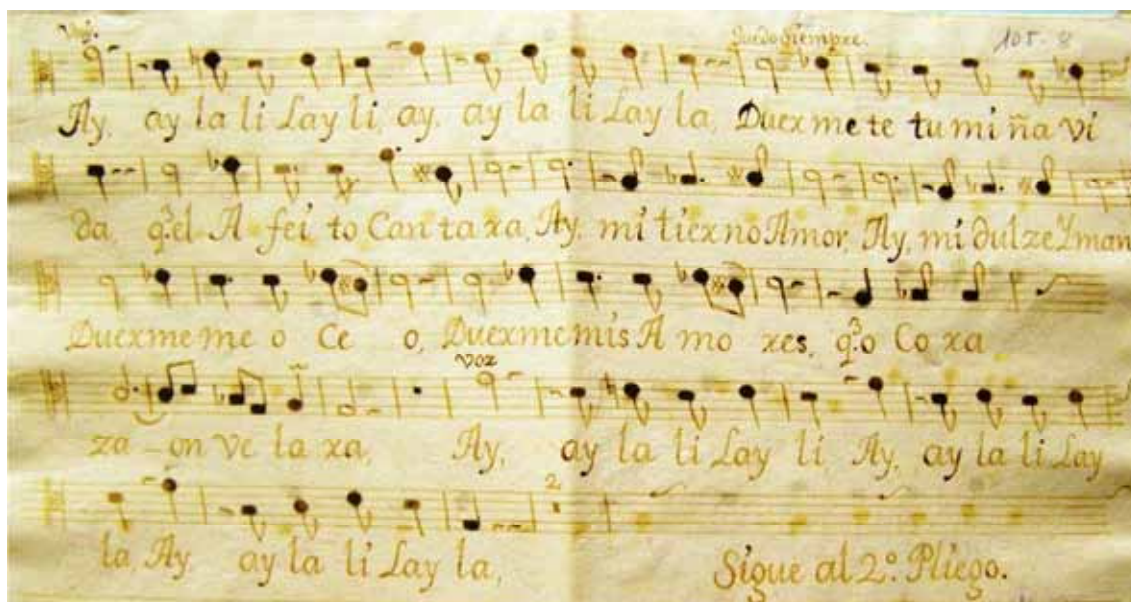 Voz. quedo siempre. 105-8
Ay, ay la li Lay li, ay, ay la li Lay la, Duerme te tu mi ña vi
da, q.e el A fei to Can ta ra, Ay, mi tierno Amor, Ay, mi dulze Yman
Duerme me o Ce o, Duerme mis A mo res, q.e o Co ra
voz
za - on ve la ra, Ay, ay la li Lay li Ay, ay la li Lay
2
la, Ay ay la li Lay la, Sigue al 2.º Pliego.